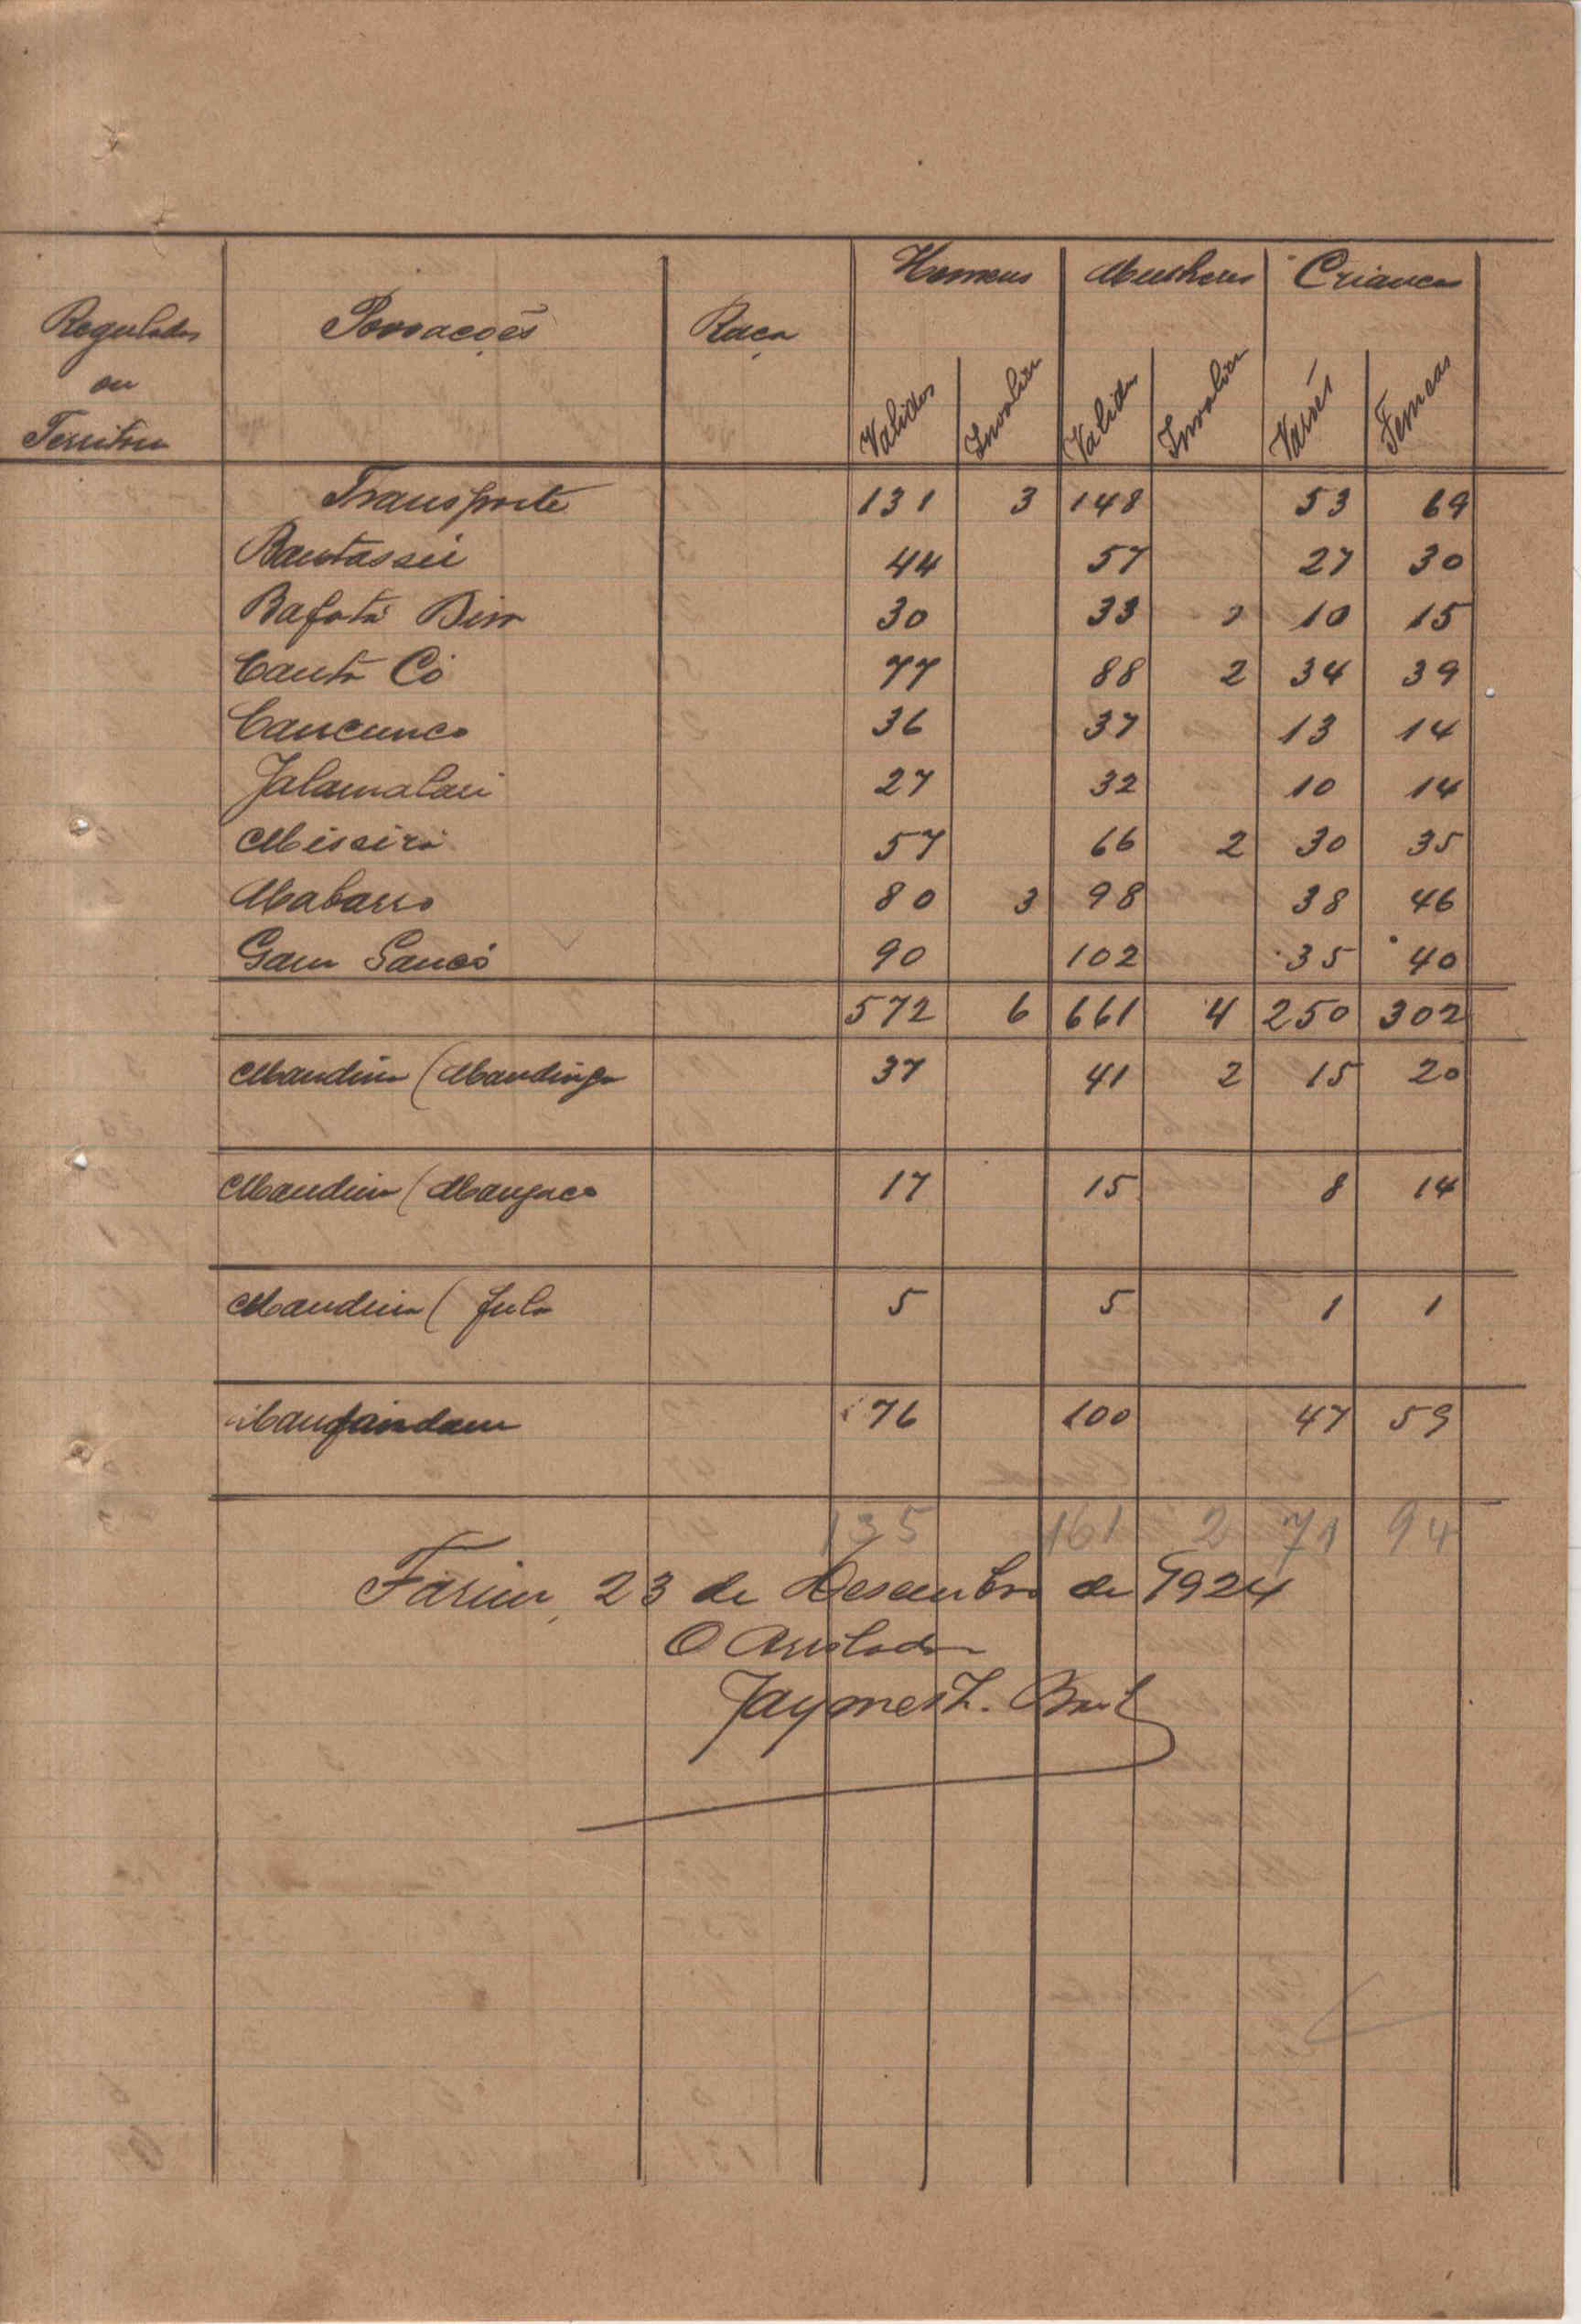 Homens Mulheres Crianças
Regulados Povoações Raça
ou
Territorio
Validos Invalidos Validas Invalidas Varões Femeas
Transporte 131 3 148 53 69
Bantassú 44 57 27 30
Bafatá Bira 30 33 10 15
Canta Có 77 88 2 34 39
Cancunco 36 37 13 14
Jalamalari 27 32 10 14
Missirá 57 66 2 30 35
Mabarro 80 3 98 38 46
Gam Sancó 90 102 35 40
572 6 661 4 250 302
(Mandinga 37 41 2 15 20
(Manjaco 17 15 8 14
(Fula 5 5 1 1
76 100 47 59
135 161 2 71 94
Farim, 23 de Desembro de 1924
O Arrolador